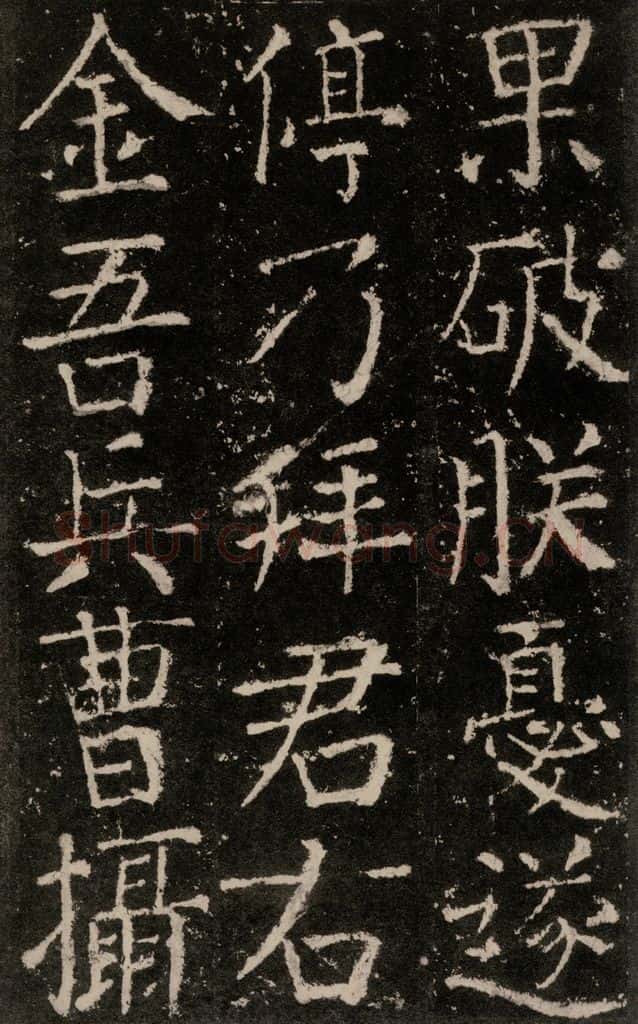 果破朕憂遂
停乃拜君右
金吾兵曹攝
Shufawang.CN